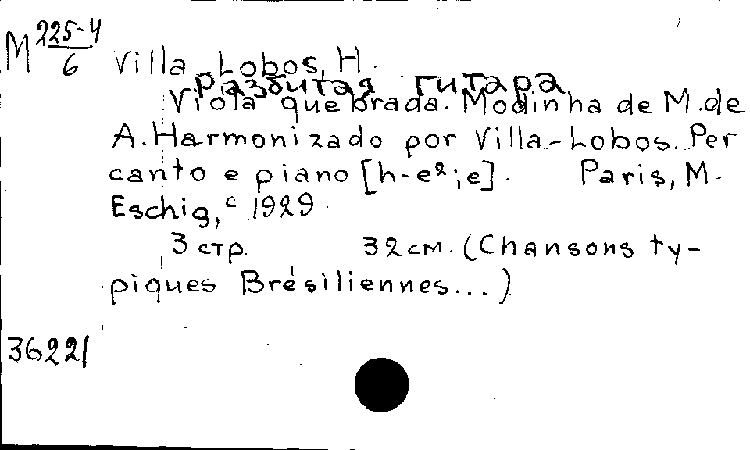 M 225-4
6
Villa-Lobos, H.
Разбитая гитара
Viola quebrada. Modinha de M. de
A. Harmonizado por Villa-Lobos. Per
canto e piano [h-e²; e]. Paris, M.
Eschig, c 1929.
3 стр. 32 см. (Chansons ty-
piques Brésiliennes...)
36221